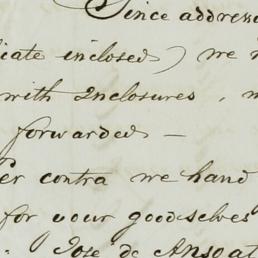 Since addresse
icate inclosed) we
with Inclosures,
forwarded —
Per contra we hand
for your goodselves
Jose de Ansoat